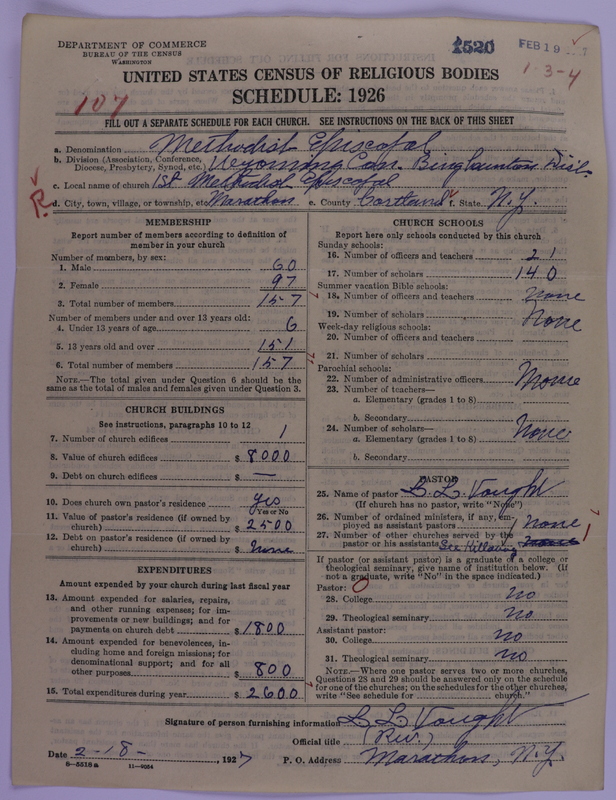 DEPARTMENT OF COMMERCE
BUREAU OF THE CENSUS
WASHINGTON
1520
FEB 19
1-3-4
107
UNITED STATES CENSUS OF RELIGIOUS BODIES
SCHEDULE: 1926
FILL OUT A SEPARATE SCHEDULE FOR EACH CHURCH. SEE INSTRUCTIONS ON THE BACK OF THIS SHEET
a. Denomination Methodist Episcopal
b. Division (Association, Conference, Diocese, Presbytery, Synod, etc.) Wyoming Con Binghamton Dist.
c. Local name of church 1st Methodist Episcopal
R. d. City, town, village, or township, etc. Marathon e. County Cortland f. State N.Y.
MEMBERSHIP
Report number of members according to definition of
member in your church
Number of members, by sex:
1. Male 60
2. Female 97
3. Total number of members 157
Number of members under and over 13 years old:
4. Under 13 years of age 6
5. 13 years old and over 151
6. Total number of members 157
NOTE.—The total given under Question 6 should be
same as the total of males and females given under Question 3.
CHURCH BUILDINGS
See instructions, paragraphs 10 to 12
7. Number of church edifices 1
8. Value of church edifices $ 8000
9. Debt on church edifices $ —
10. Does church own pastor's residence yes
(Yes or No)
11. Value of pastor's residence (if owned by
church) $ 2500
12. Debt on pastor's residence (if owned by
church) $ none
EXPENDITURES
Amount expended by your church during last fiscal year
13. Amount expended for salaries, repairs,
and other running expenses; for im-
provements or new building; and for
payments on church debt $ 1800
14. Amount expended for benevolences, in-
cluding home and foreign missions; for
denominational support; and for all
other purposes $ 800
15. Total expenditures during year $ 2600
CHURCH SCHOOLS
Report here only schools conducted by this church
Sunday schools:
16. Number of officers and teachers 21
17. Number of scholars 140
Summer vacation Bible schools:
18. Number of officers and teachers none
19. Number of scholars None
Week-day religious schools:
20. Number of officers and teachers
21. Number of scholars
Parochial schools:
22. Number of administrative officers None
23. Number of teachers—
a. Elementary (grades 1 to 8)
b. Secondary
24. Number of scholars— None
a. Elementary (grades 1 to 8)
b. Secondary
PASTOR
25. Name of pastor L. L. Vought
(If church has no pastor, write "None")
26. Number of ordained ministers, if any, em-
ployed as assistant pastors none
27. Number of other churches served by the
pastor or his assistants See Killawog none 1
If pastor (or assistant pastor) is a graduate of a college or
theological seminary, give name of institution below. (If
not a graduate, write "No" in the space indicated.)
Pastor:
28. College no
29. Theological seminary no
Assistant pastor:
30. College no
31. Theological seminary no
NOTE.—Where one pastor serves two or more churches,
Questions 28 and 29 should be answered only on the schedule
for one of the churches; on the schedules for the other churches,
write "See schedule for church."
Signature of person furnishing information L L Vought
Official title (Rev.)
Date 2-18-, 1927 P. O. Address Marathon, N.Y.
8-5518a 11-9064